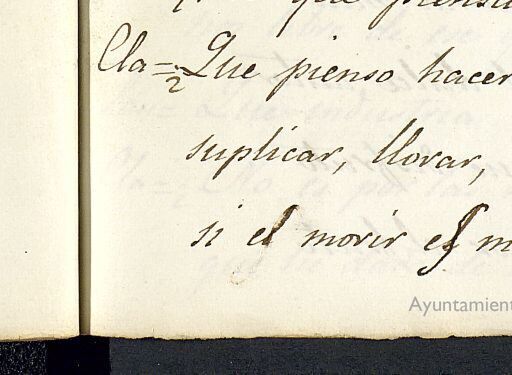 que piensa
Cla= ¿Que pienso hacer
suplicar, llorar,
si el morir es m
Ayuntamient